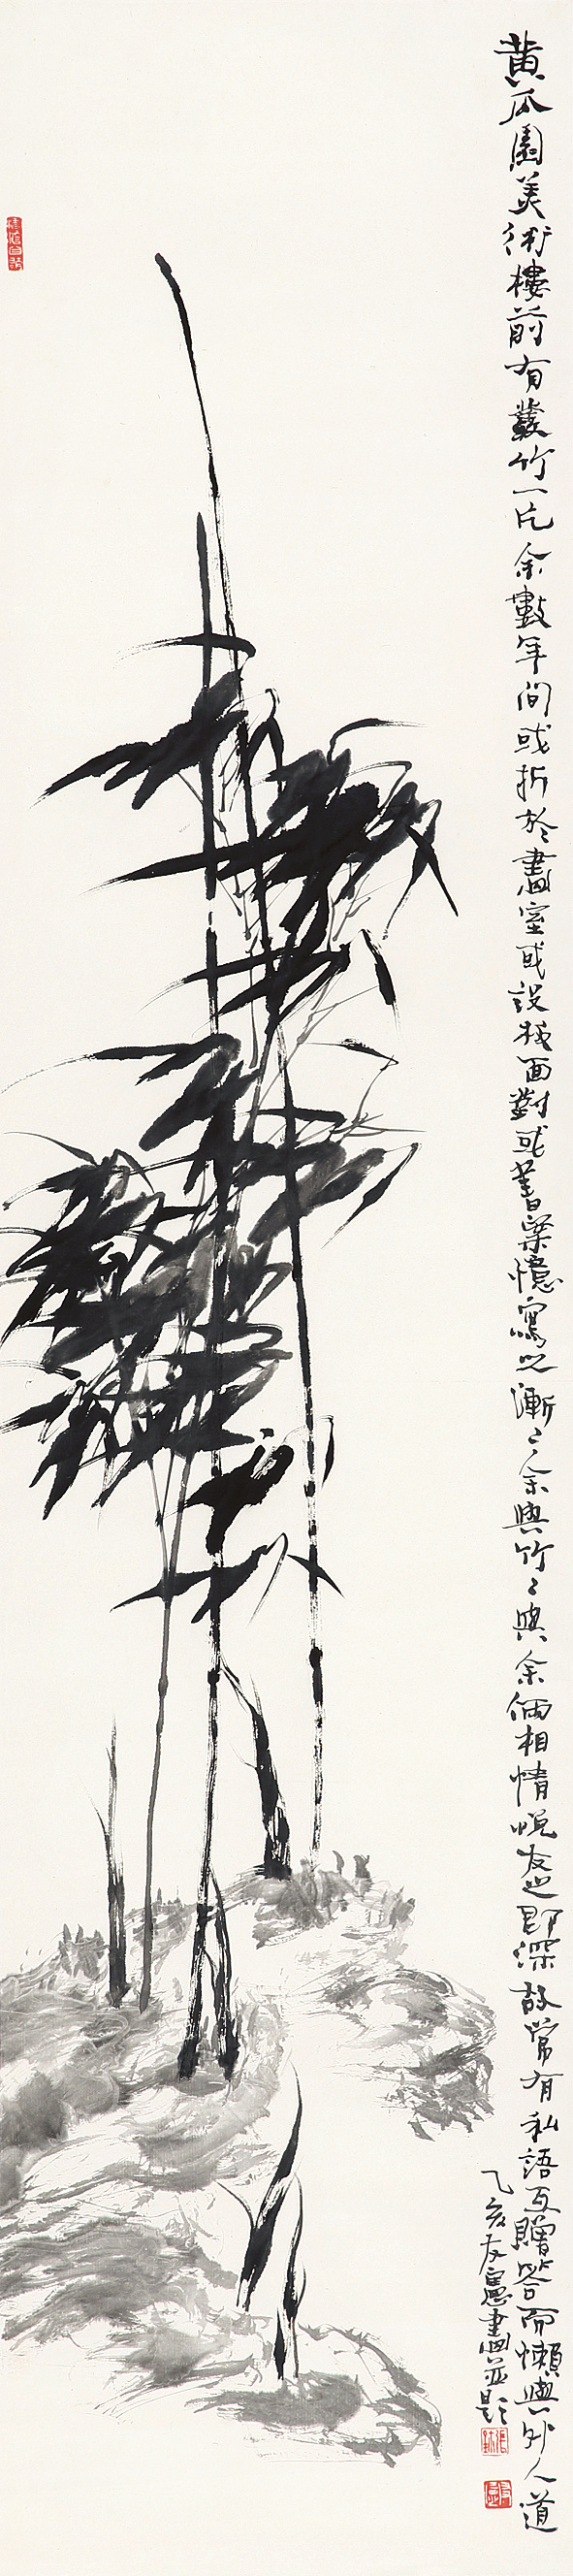 黄瓜園美術樓前有叢竹一片余數年間或折於畫室或設椅面對或菩䊆憶寫之漸〻余與竹〻與余倆相情悦友也即深故常有私語互贈答而懶與外人道
乙亥友憲畫並題